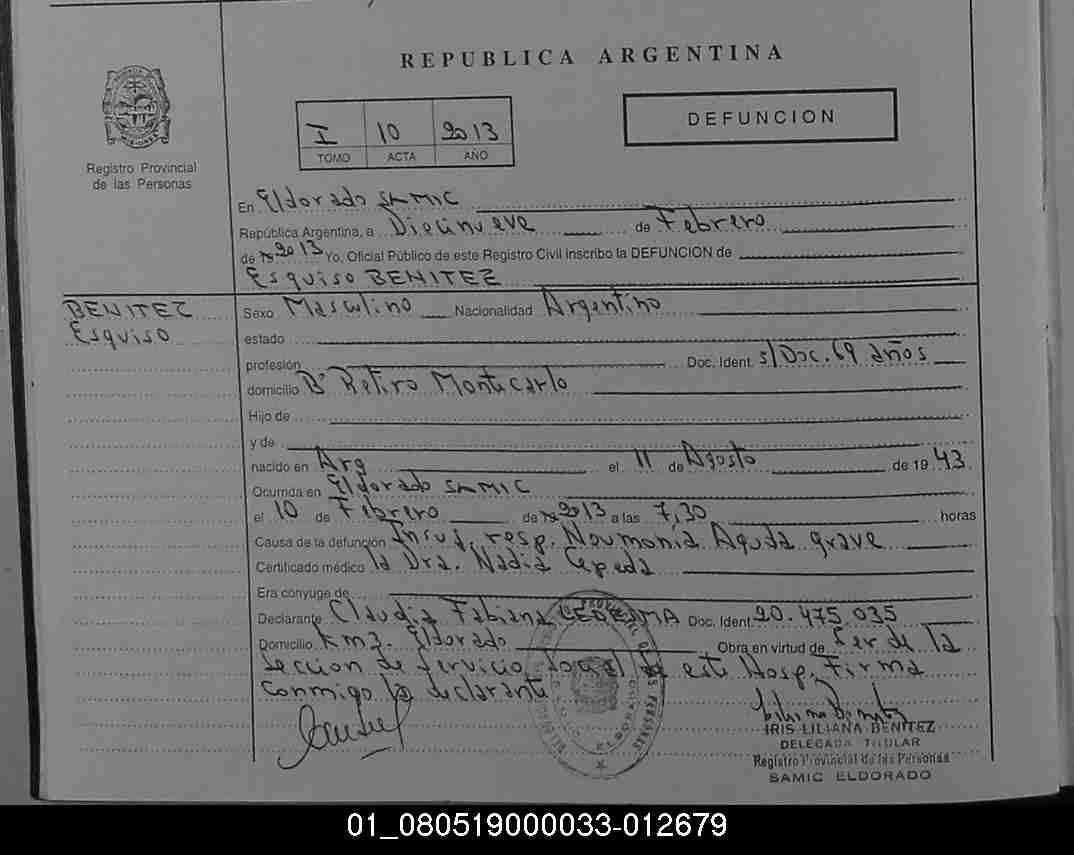 REPUBLICA ARGENTINA
MISIONES
Registro Provincial
de las Personas
I 10 2013
TOMO ACTA AÑO
DEFUNCION
En Eldorado SAMIC
República Argentina, a Diecinueve de Febrero
de 2013 Yo, Oficial Público de este Registro Civil inscribo la DEFUNCION de
Esquiso BENITEZ
BENITEZ
Esquiso
Sexo Masculino Nacionalidad Argentino
estado
profesión Doc. Ident. s/Doc. 69 años
domicilio Bº Retiro Montecarlo
Hijo de
y de
nacido en Arg el 11 de Agosto de 19 43
Ocurrida en Eldorado SAMIC
el 10 de Febrero de 2013 a las 7,30 horas
Causa de la defunción Insuf. resp. Neumonia Aguda grave
Certificado médico la Dra. Nadia Cepeda
Era conyuge de
Declarante Claudia Fabiana LEDESMA Doc. Ident. 20.475.035
Domicilio Km 3. Eldorado Obra en virtud de Ser de la
Seccion de Servicio Social de este Hosp, Firma
conmigo la declarante
IRIS LILIANA BENITEZ
DELEGADA TITULAR
Registro Provincial de las Personas
SAMIC ELDORADO
01_080519000033-012679